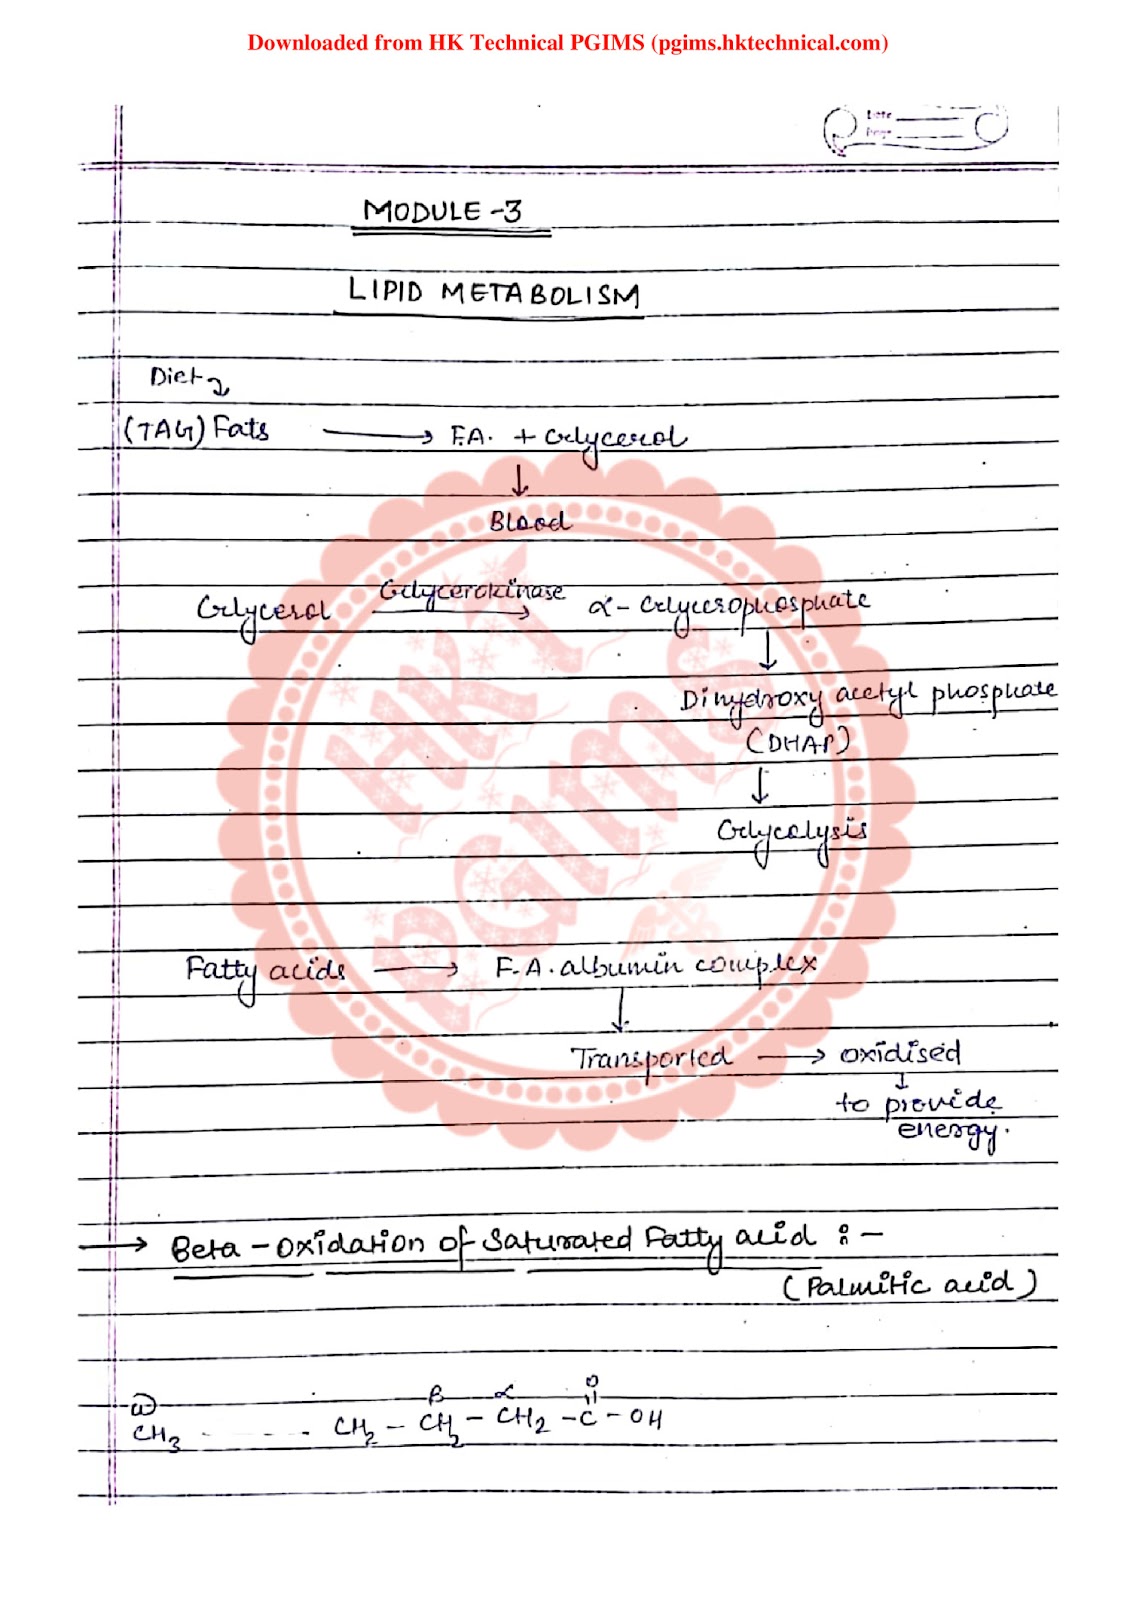 Downloaded from HK Technical PGIMS (pgims.hktechnical.com)
Date
Page
MODULE -3
LIPID METABOLISM
Diet
(TAG) Fats → F.A. + Glycerol
↓
Blood
Glycerol Glycerokinase → α- Glycerophosphate
↓
Dihydroxy acetyl phosphate
(DHAP)
↓
Glycolysis
HKT
PGIMS
Fatty acids → F.A. albumin complex
↓
Transported → oxidised
↓
to provide
energy.
→ Beta - oxidation of Saturated Fatty acid :-
(Palmitic acid)
ω β α O
CH3 - - - - - - CH2 - CH2 - CH2 - C - OH